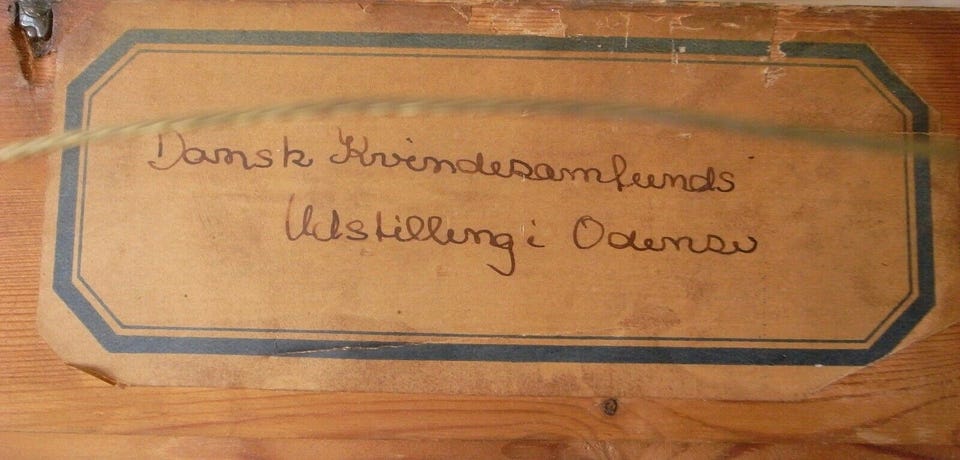 Dansk Kvindesamfunds
Udstilling i Odense